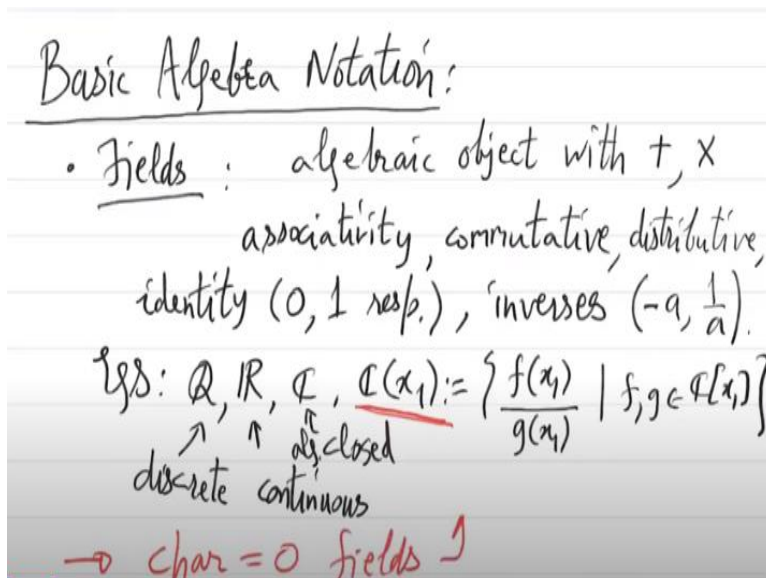 Basic Algebra Notation:
• Fields : algebraic object with +, ×
associativity, commutative, distributive,
identity (0, 1 resp.), inverses (-a, 1/a).
Egs: ℚ, ℝ, ℂ, ℂ(x₁) := { f(x₁)/g(x₁) | f, g ∈ ℂ[x₁] }
↗ ↑ ↑
alg. closed
discrete continuous
→ char = 0 fields ↑